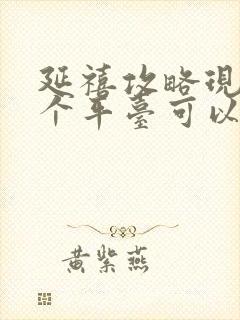 延禧攻略現
个平臺可以
黄紫燕